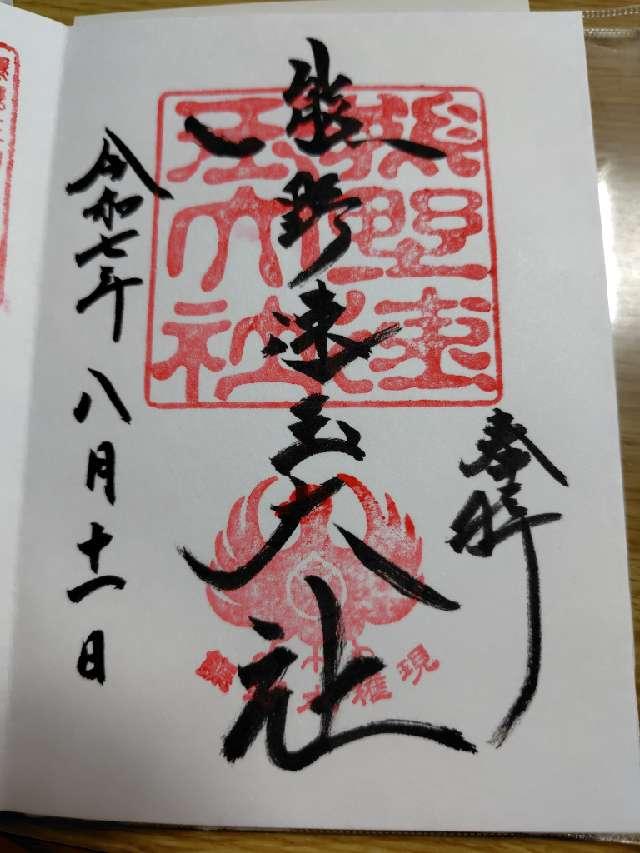 奉拝
熊野速玉大社
令和七年 八月十一日
熊野速
玉大社